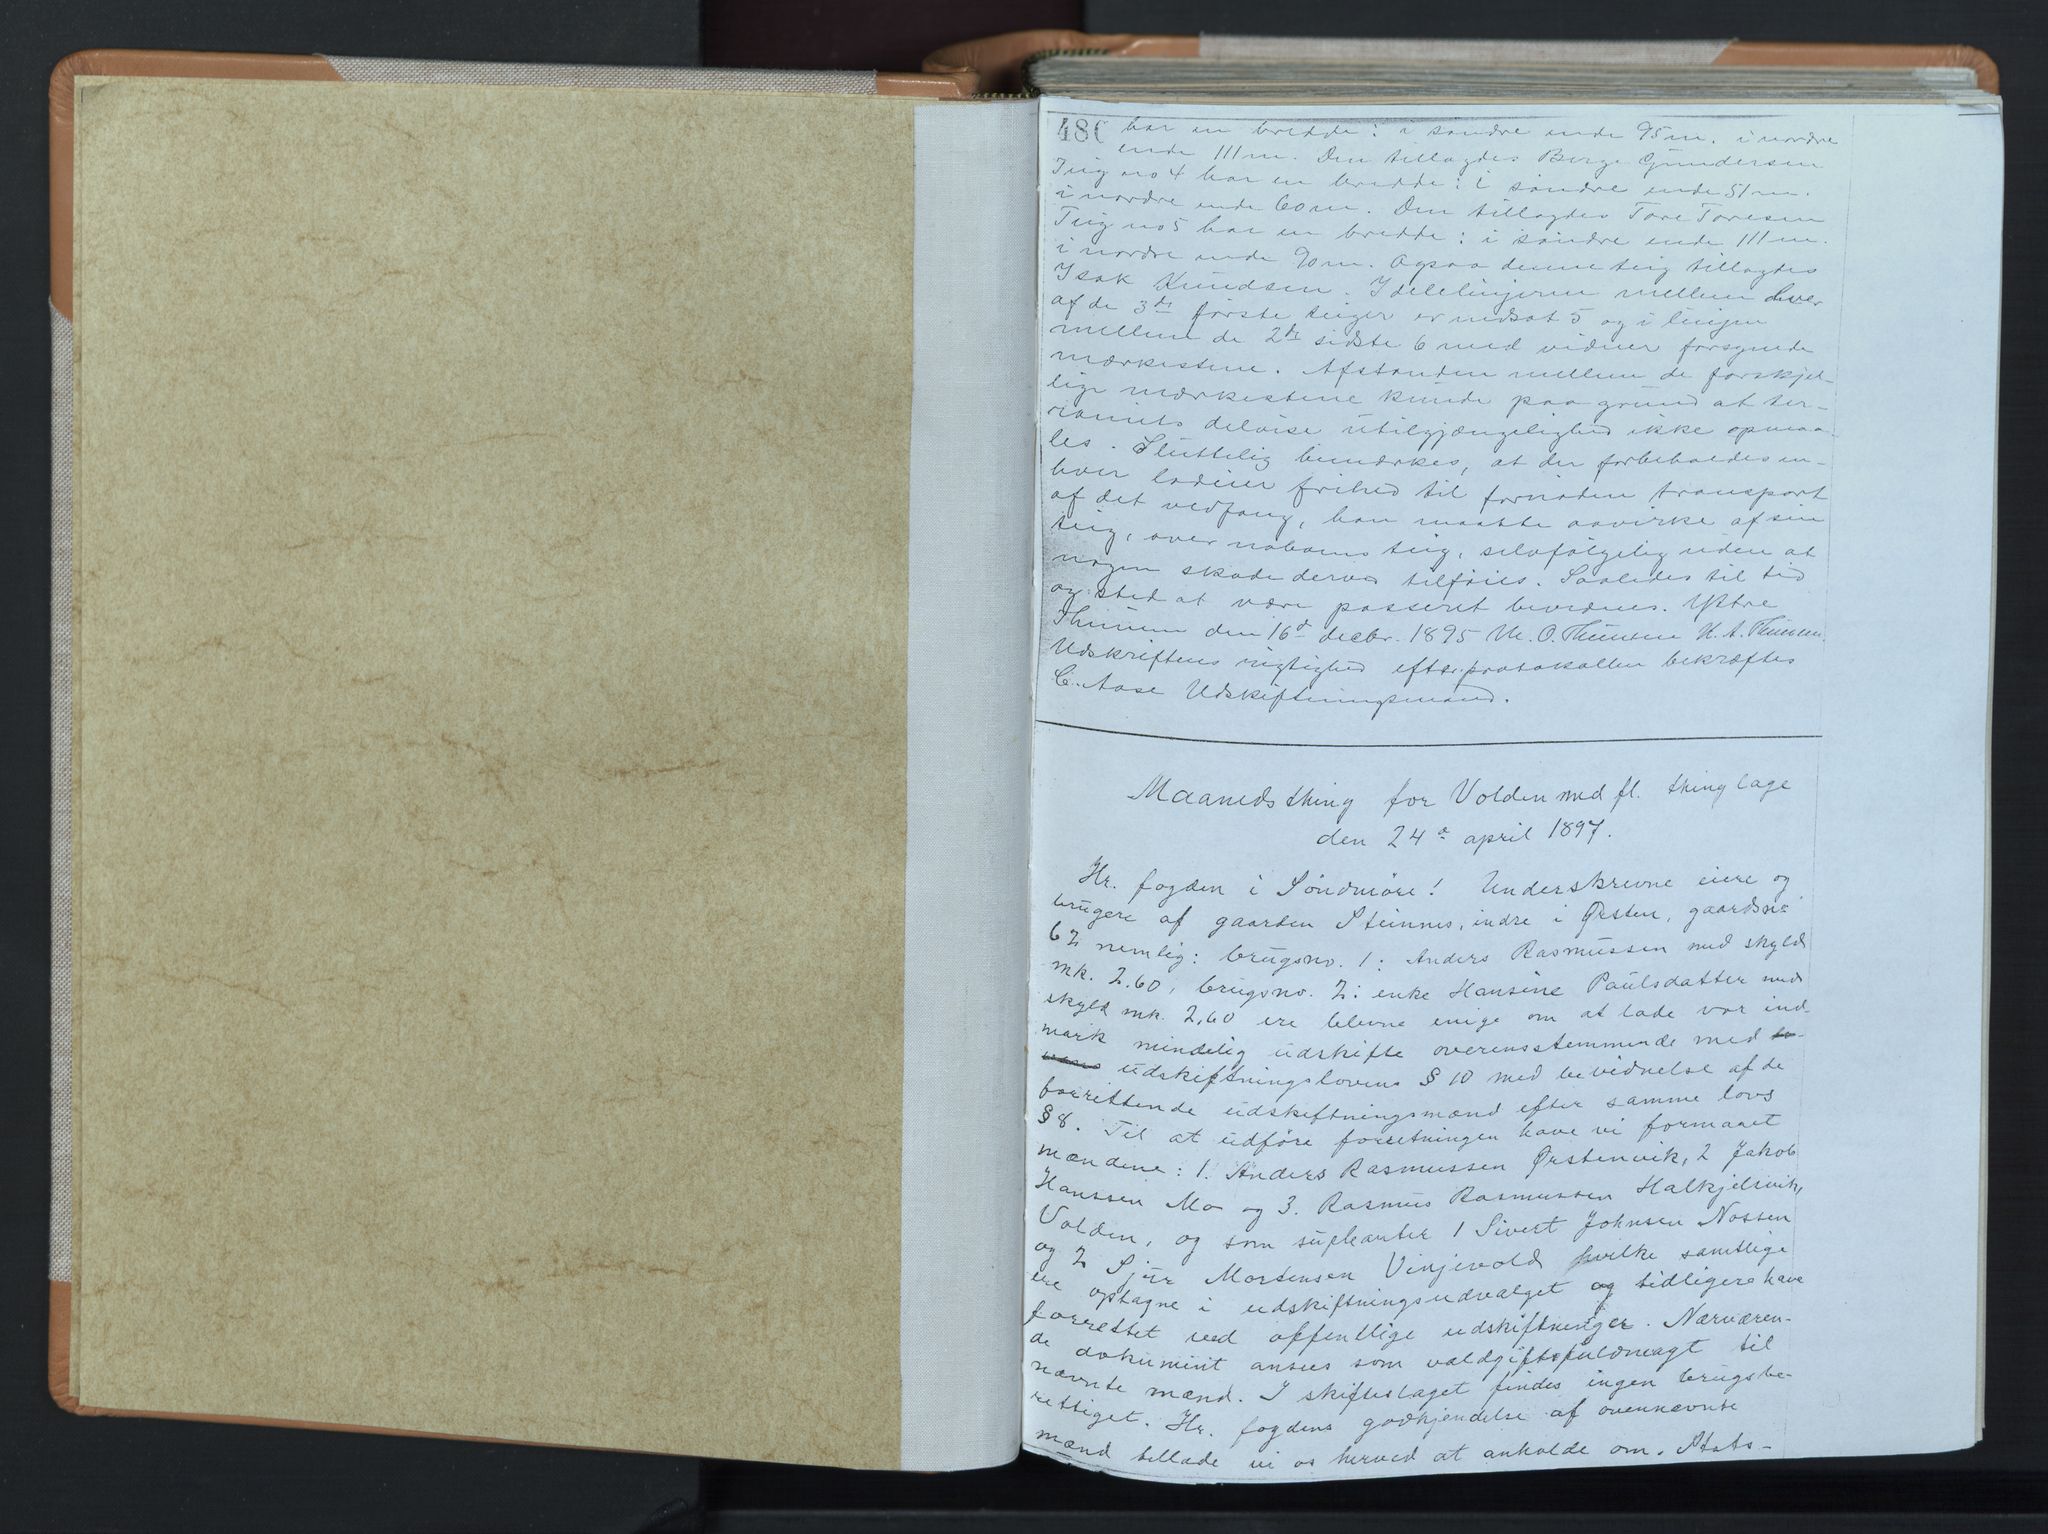 480 har en bredde: i søndre ende 95 m. i nordre
ende 111 m. Den tillagdes Børge Gundersen
Teig no 4 har en bredde: i søndre ende 51 m.
i nordre ende 60 m. Den tillagdes Tore Toresen
Teig no 5 har en bredde: i søndre ende 111 m.
i nordre ende 90 m. Ogsaa denne teig tillagdes
Isak Knudsen. I delelinjerne mellem hver
af de 3de første teiger er nedsat 5 og i linjen
mellem de 2de sidste 6 med vidner forsynede
mærkestene. Afstanden mellem de forskjel-
lige mærkestene kunde paa grund at ter-
rænets delvise utilgjængelighed ikke opmaa-
les. Sluttelig bemærkes, at der forbeholdes en-
hver lodeier frihed til fornøden transport
af det vedfang, han maatte avirke af sin
teig, over naboens teig, selvfølgelig uden at
nogen skade derved tilføies. Saaledes til tid
og sted at være passeret bevidnes. Ystre
Thunem den 16d decbr. 1895 M. O. Thunem K. A. Thunem.
Udskriftens rigtighed efter protokollen bekræftes
C. Aase Udskiftningsmand.
Maanedsthing for Volden med fl. thinglage
den 24de april 1897.
Hr. fogden i Søndmøre! Underskrevne eiere og
brugere af gaarden Steinnes, indre i Ørsten, gaardsno
62 nemlig: brugsno. 1: Anders Rasmussen med skyld
mk. 2.60, brugsno. 2: enke Hansine Paulsdatter med
skyld mk. 2,60 ere blevne enige om at lade vor ind-
mark mindelig udskifte overensstemmende med
udskiftningslovens § 10 med bevidnelse af de
forrettende udskiftningsmænd efter samme lovs
§ 8. Til at udføre forretningen have vi formaaet
mændene: 1. Anders Rasmussen Ørstenvik, 2 Jakob
Hanssen Mo og 3. Rasmus Rasmussen Halkjelsvik,
Volden, og som supleanter 1 Sivert Johnsen Nossen
og 2 Sjur Mortensen Vinjevold hvilke samtlige
ere optagne i udskiftningsudvalget og tidligere have
forrettet ved offentlige udskiftninger. Nærværen-
de dokument ansees som voldgiftsfuldmagt til
nævnte mænd. I skifteslaget findes ingen brugsbe-
rettiget. Hr. fogdens godkjendelse af ovennævnte
mænd tillade vi os herved at anholde om. Stats-